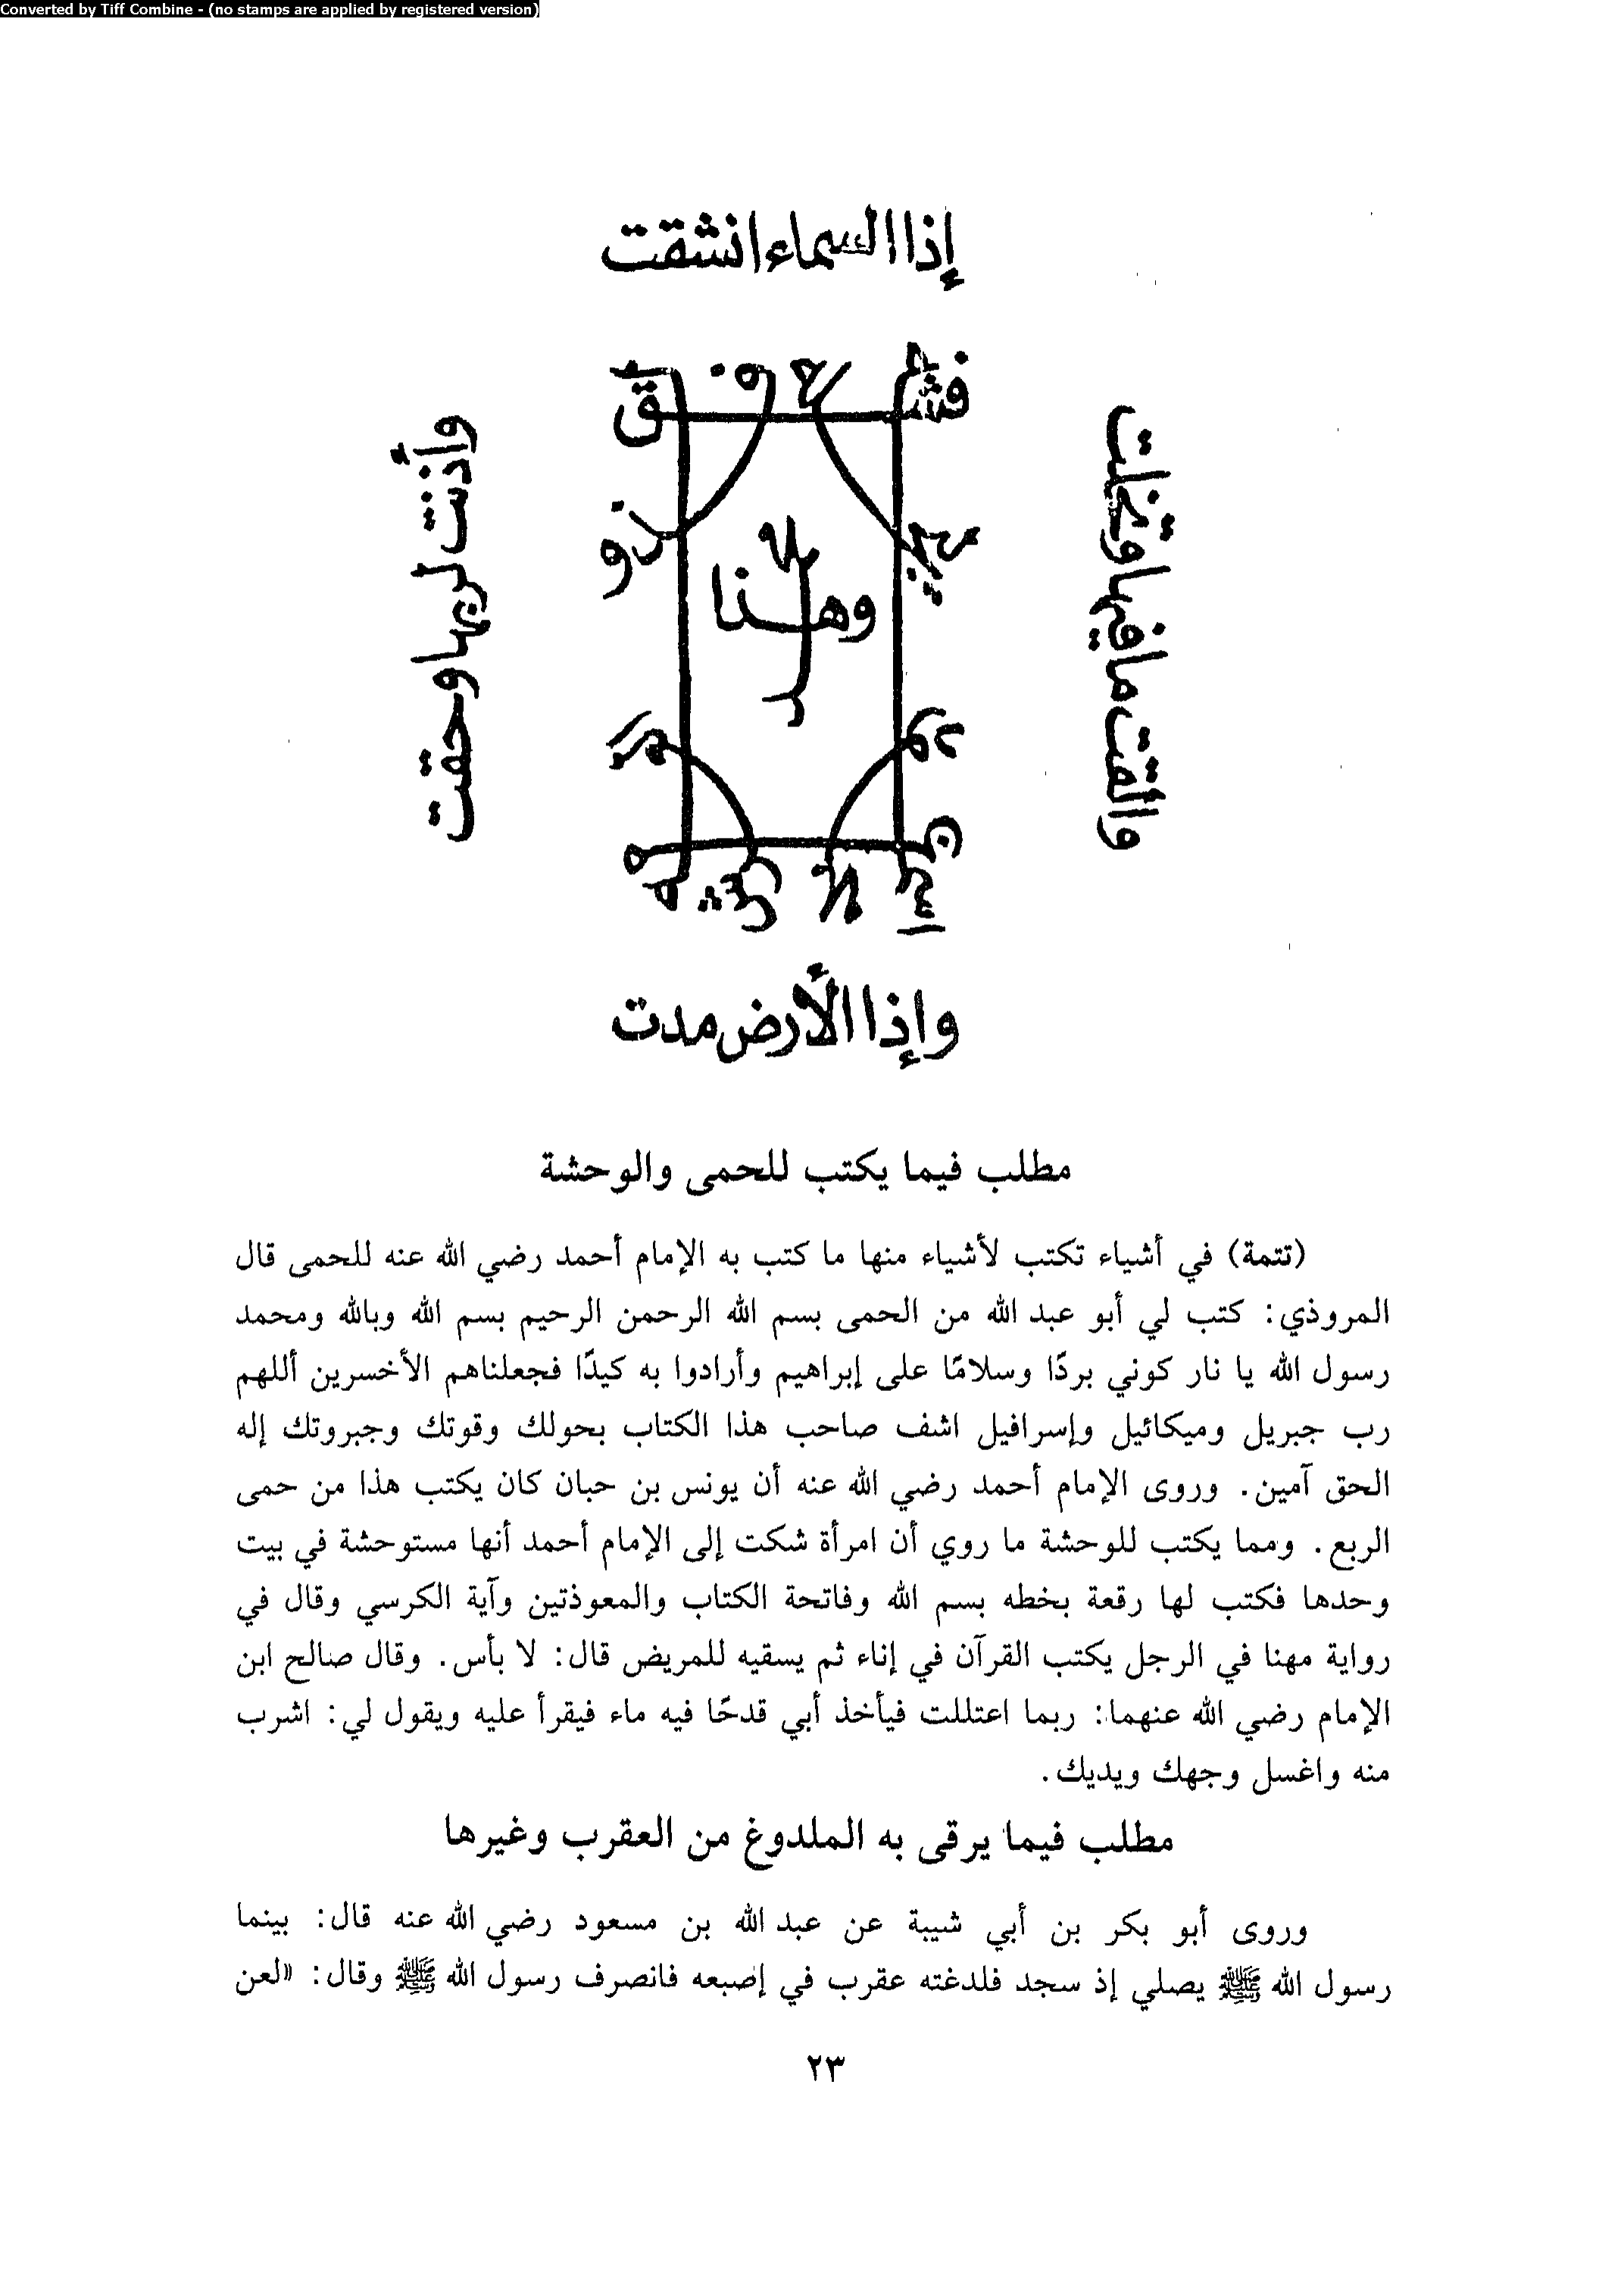 Converted by Tiff Combine - (no stamps are applied by registered version)
إذا السماء انشقت
وأذنت لربها وحقت
وهذا
وألقت ما فيها وتخلت
وإذا الأرض مدت
مطلب فيما يكتب للحمى والوحشة
(تتمة) في أشياء تكتب لأشياء منها ما كتب به الإمام أحمد رضي الله عنه للحمى قال
المروذي: كتب لي أبو عبد الله من الحمى بسم الله الرحمن الرحيم بسم الله وبالله ومحمد
رسول الله يا نار كوني بردًا وسلامًا على إبراهيم وأرادوا به كيدًا فجعلناهم الأخسرين أللهم
رب جبريل وميكائيل وإسرافيل اشف صاحب هذا الكتاب بحولك وقوتك وجبروتك إله
الحق آمين. وروى الإمام أحمد رضي الله عنه أن يونس بن حبان كان يكتب هذا من حمى
الربع. ومما يكتب للوحشة ما روي أن امرأة شكت إلى الإمام أحمد أنها مستوحشة في بيت
وحدها فكتب لها رقعة بخطه بسم الله وفاتحة الكتاب والمعوذتين وآية الكرسي وقال في
رواية مهنا في الرجل يكتب القرآن في إناء ثم يسقيه للمريض قال: لا بأس. وقال صالح ابن
الإمام رضي الله عنهما: ربما اعتللت فيأخذ أبي قدحًا فيه ماء فيقرأ عليه ويقول لي: اشرب
منه واغسل وجهك ويديك.
مطلب فيما يرقى به الملدوغ من العقرب وغيرها
وروى أبو بكر بن أبي شيبة عن عبد الله بن مسعود رضي الله عنه قال: بينما
رسول الله ﷺ يصلي إذ سجد فلدغته عقرب في إصبعه فانصرف رسول الله ﷺ وقال: «لعن
٢٣